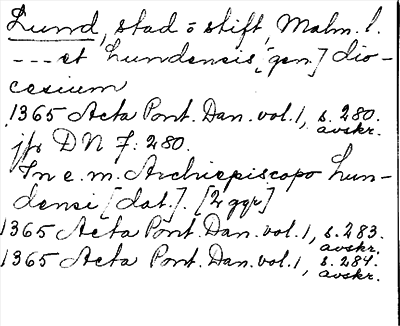 Lund, stad o stift, Malm. l.
--- et Lundensis [gen.] dio-
cesium
1365 Acta Pont. Dan. vol. 1, s. 280.
avskr.
jfr DN 7: 280.
In e. m. Archiepiscopo Lun-
densi [dat.]. [2 ggr]
1365 Acta Pont. Dan. vol. 1, s. 283.
avskr.
1365 Acta Pont. Dan. vol. 1, s. 284.
avskr.